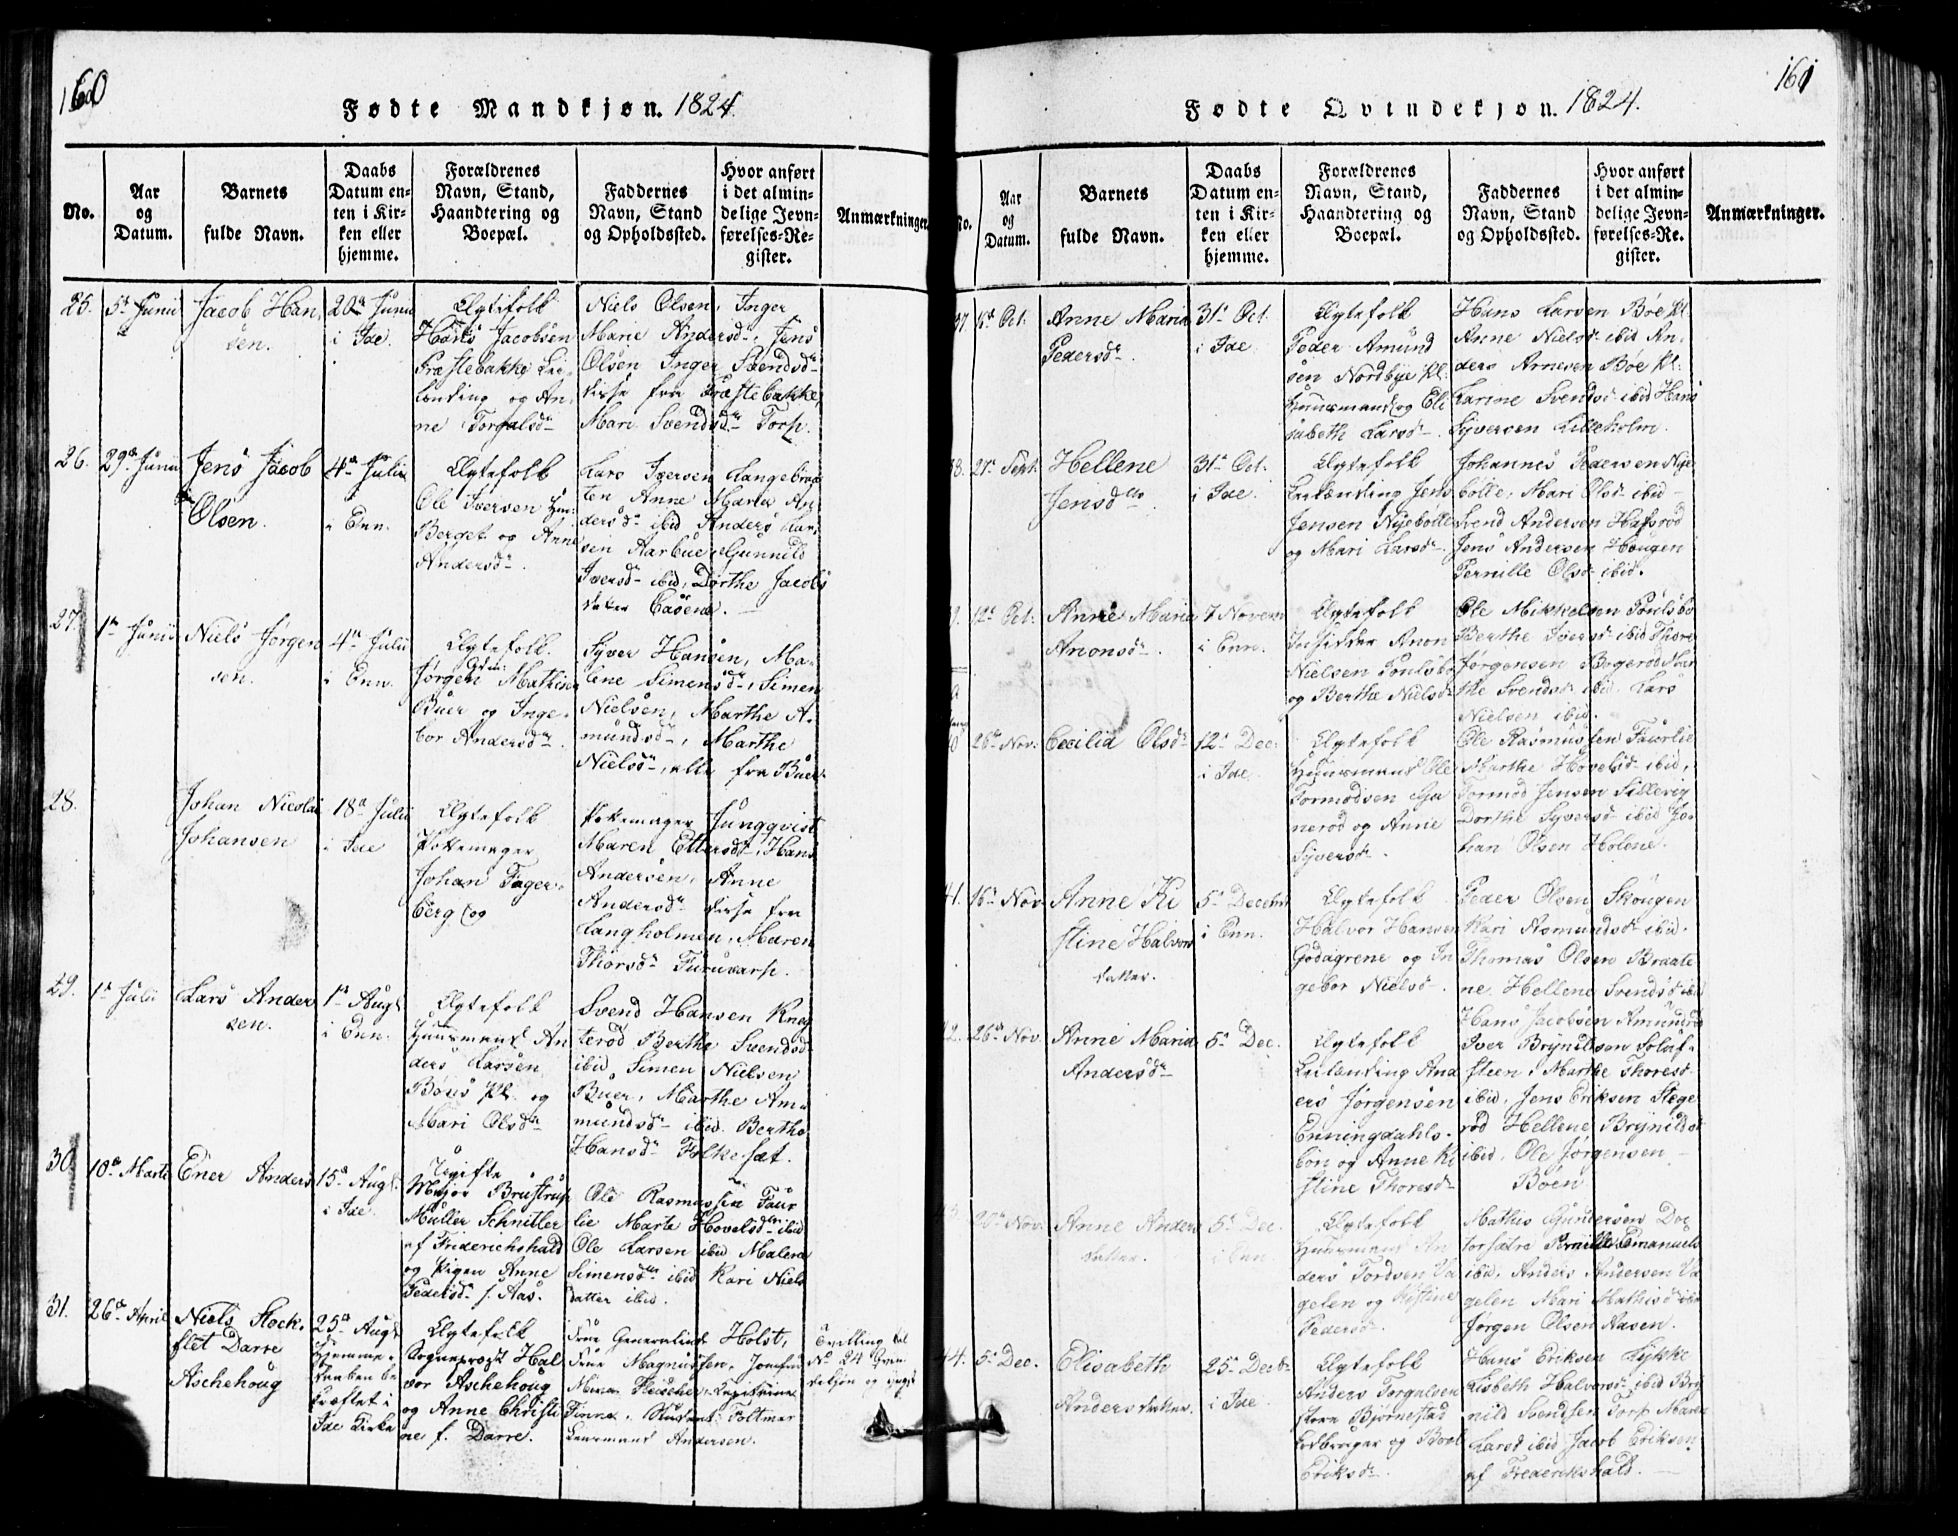 160
Fødte Mandkjøn. 1824.
No.
Aar
og
Datum.
Barnets
fulde Navn.
Daabs
Datum en-
ten i Kir-
ken eller
hjemme.
Forældrenes
Navn, Stand,
Haandtering og
Boepæl.
Faddernes
Navn, Stand
og Opholdssted.
Hvor anført
i det almin-
delige Jevn-
førelses-Re-
gister.
Anmærkninger.
25.
5t Junii
Jacob Han-
sen.
20de Junii
i Ide.
Ægtefolk
Hans Jacobsen
Præstebakke Lei-
lending og An-
ne Torgalsdr
Niels Olsen, Inger
Marie Andersdr, Jens
Olsen Inger Svendsdr
disse fra Præstebakke,
Mari Svendsdr Torp.
26.
29de Junii
Jens Jacob
Olsen.
4de Julii
i Enn.
Ægtefolk
Ole Iversen
Berget og Anne
Andersdr.
Lars Iversen Langebraa-
ten Anne Maria An-
dersdr ibid Anders Lar-
sen Aarbue, Gunnild
Iversdr ibid, Dorthe Jacobs
datter
27.
1te Junii
Niels Jørgen
sen.
4de Julii
i Enn.
Ægtefolk.
Jørgen Mathisen
Buer og Inge-
bor Andersdr.
Syver Hansen, Ma-
lene Simensdr, Simen
Nielsen, Marthe A-
mundsdr, Marthe
Nielsdr, alle fra Buer.
28.
Johan Nicolai
Johansen
18de Julii
i Ide
Ægtefolk
Johan Fager-
berg og
Jungqvist
Maren Ettersdr, Hans
Andersen, Anne
Andersdr disse fra
Langholmen, Maren
Thorsdr Furuvarp.
29.
1te Julii
Lars Ander
sen.
1te Augt
i Enn.
Ægtefolk
Huusmand An
ders Larsen
Bøens Pl. og
Mari Olsdr
Svend Hansen Kna-
terød Berthe Svendsdr
ibid, Simen Nielsen
Buer, Marthe Am-
mundsdr ibid. Berthe
Hansdr Folkesæt.
30.
10de Marti
Ener Anders
15de Augt.
i Ide.
Ugifte
Major Brustrup
Müller Schnitler
af Friderichshald
og Pigen Anne
Pedersdr f. Aas.
Ole Rasmussen Faur
lie Marte Hovelsdr ibid
Ole Larsen ibid Malene
Simensdr ibid Kari Niels
datter ibid.
31.
26de April
Niels Stock-
flet Darre
Aschehoug
25de Augt
hjemme-
daaben be
kræftet i
Ide Kirke
Ægtefolk
Sogneprest Hal
vor Aschehoug
og Anne Christi
ne f. Darre.
Frue Generalinde Holst,
Frue Magnussen, Jomfrue
Finne, Student Foltmar
Leermand Andersen.
Tvilling
No 24
161
Fødte Qvindekjøn. 1824.
No.
Aar
og
Datum.
Barnets
fulde Navn.
Daabs
Datum en-
ten i Kir-
ken eller
hjemme.
Forældrenes
Navn, Stand,
Haandtering og
Boepæl.
Faddernes
Navn, Stand
og Opholdssted.
Hvor anført
i det almin-
delige Jevn-
førelses-Re-
gister.
Anmærkninger.
37
Oct.
Anne Maria
Pedersdr.
31te Oct.
i Ide.
Ægtefolk
Peder Amund
sen Nordbye Pl.
Huusmand og Eli
sabeth Larsdr.
Hans Larsen Bøe Pl.
Anne Nielsdr ibid An-
ders Arnesen Bøe Pl.
Karine Svendsdr ibid Hans
Syversen Lilleholm.
38.
21de Sept.
Hellene
Jensdtr
31te Oct.
i Ide.
Ægtefolk
Leilending Jens
Jensen Nyebølle
og Mari Larsdr.
Johannes Pedersen Nye
bølle, Mari Olsdr ibid
Svend Andersen Hafsrød
Jens Andersen Hougen
Pernille Olsdr ibid.
39.
12te Oct.
Anne Maria
Anonsdr.
7 Novem
i Enn.
Ægtefolk
Anon
Nielsen Poulsbø
og Berthe Nielsdr
Ole Mikkelsen Poulsbø
Berthe Iversdr ibid Thore
Jørgensen Bøgerød Mar
the Svendsdr ibid. Lars
Nielsen ibid.
40
26de Nov.
Cecilia Olsdr
12te Dec.
i Ide.
Ægtefolk
Huusmand Ole
Tormodsen
nerød og Anne
Syversdr.
Ole Rasmussen Faurlie
Marthe Hovelsdr ibid,
Tormod Jensen Sillevig
Dorthe Syversdr ibid Jo-
han Olsen Holene.
41.
16de Nov.
Anne Ki
stine Halvors
datter.
5te Decembr
i Enn.
Ægtefolk
Halvor Hansen
Godagrene og In
gebor Nielsdr.
Peder Olsen Skougen
Kari Asmundsdr ibid.
Thomas Olsen Braate
ne, Hellene Svendsdr ibid
Hans Jacobsen Amundrø
42.
26de Nov.
Anne Maria
Andersdr
5te Dec.
Ægtefolk
Leilending And
ers Jørgensen
Enningdahls-
bøn og Anne Ki
stine Thoresdr
Iver Brynildsen Holaf-
steen, Marthe Thoresdr
ibid, Jens Eriksen Stege
rød Hellene Brynildsdr
ibid, Ole Jørgensen
Bøen
43.
20de Nov.
Anne Anders
datter.
5te Dec.
i Enn.
Ægtefolk
Huusmand An
ders Tordsen Va
gelen og Kistine
Pedersdr.
Mathis Gundersen Doc
torsætre Pernille Emanuels
ibid. Anders Andersen Va
gelen Mari Mathisdr ibid
Jørgen Olsen Aasen.
44.
5te Dec.
Elisabeth
Andersdatter.
25de Decbr
i Ide.
Ægtefolk
Anders Torgalsen
store Bjørnestad
og Boel
Eriksdr.
Hans Eriksen Lykke
Lisbeth Halvorsdr ibid Bry
nild Svendsen Torp Maren
Larsdr ibid Jacob Eriksen
af Frederikshald.